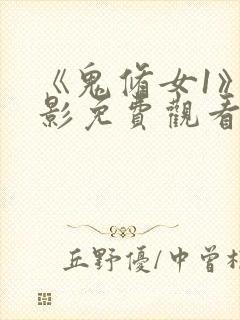 《鬼脩女1》
影免費觀看
丘野優/中曾根